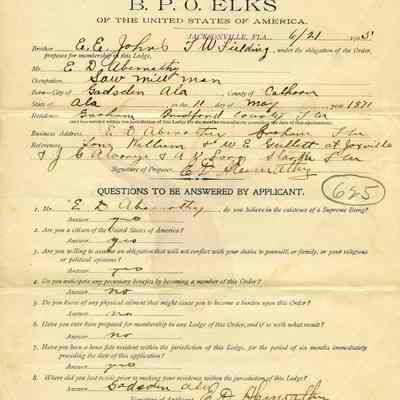 B. P. O. ELKS
OF THE UNITED STATES OF AMERICA.
JACKSONVILLE, FLA. 6/21 1905
Brother E. E. Johns T W Fielding, under the obligation of the Order,
proposes for membership in this Lodge.
Mr. E D Abernathy
Occupation Saw mill man
Born—City of Gadsden Ala County of Calhoun
State of Ala on the 11 day of May year 1871
Residence Graham Bradford County Fla
Business Address E D Abernathy Graham Fla
References W E Gullett at Jaxville
& J C & Starke Fla
Signature of Proposer E D Abernathy
625
QUESTIONS TO BE ANSWERED BY APPLICANT.
1. Mr. E D Abernathy, do you believe in the existence of a Supreme Being?
Answer yes
2. Are you a citizen of the United States of America?
Answer yes
3. Are you willing to assume an obligation that will not conflict with your duties to yourself, or family, or your religious
or political opinions?
Answer yes
4. Do you anticipate any pecuniary benefits by becoming a member of this Order?
Answer no
5. Do you know of any physical ailment that might cause you to become a burden upon this Order?
Answer no
6. Have you ever been proposed for membership in any Lodge of this Order, and if so with what result?
Answer no
7. Have you been a bona fide resident within the jurisdiction of this Lodge, for the period of six months immediately
preceding the date of this application?
Answer yes
8. Where did you last reside prior to making your residence within the jurisdiction of this Lodge?
Answer Gadsden Ala
Signature of Applicant E D Abernathy